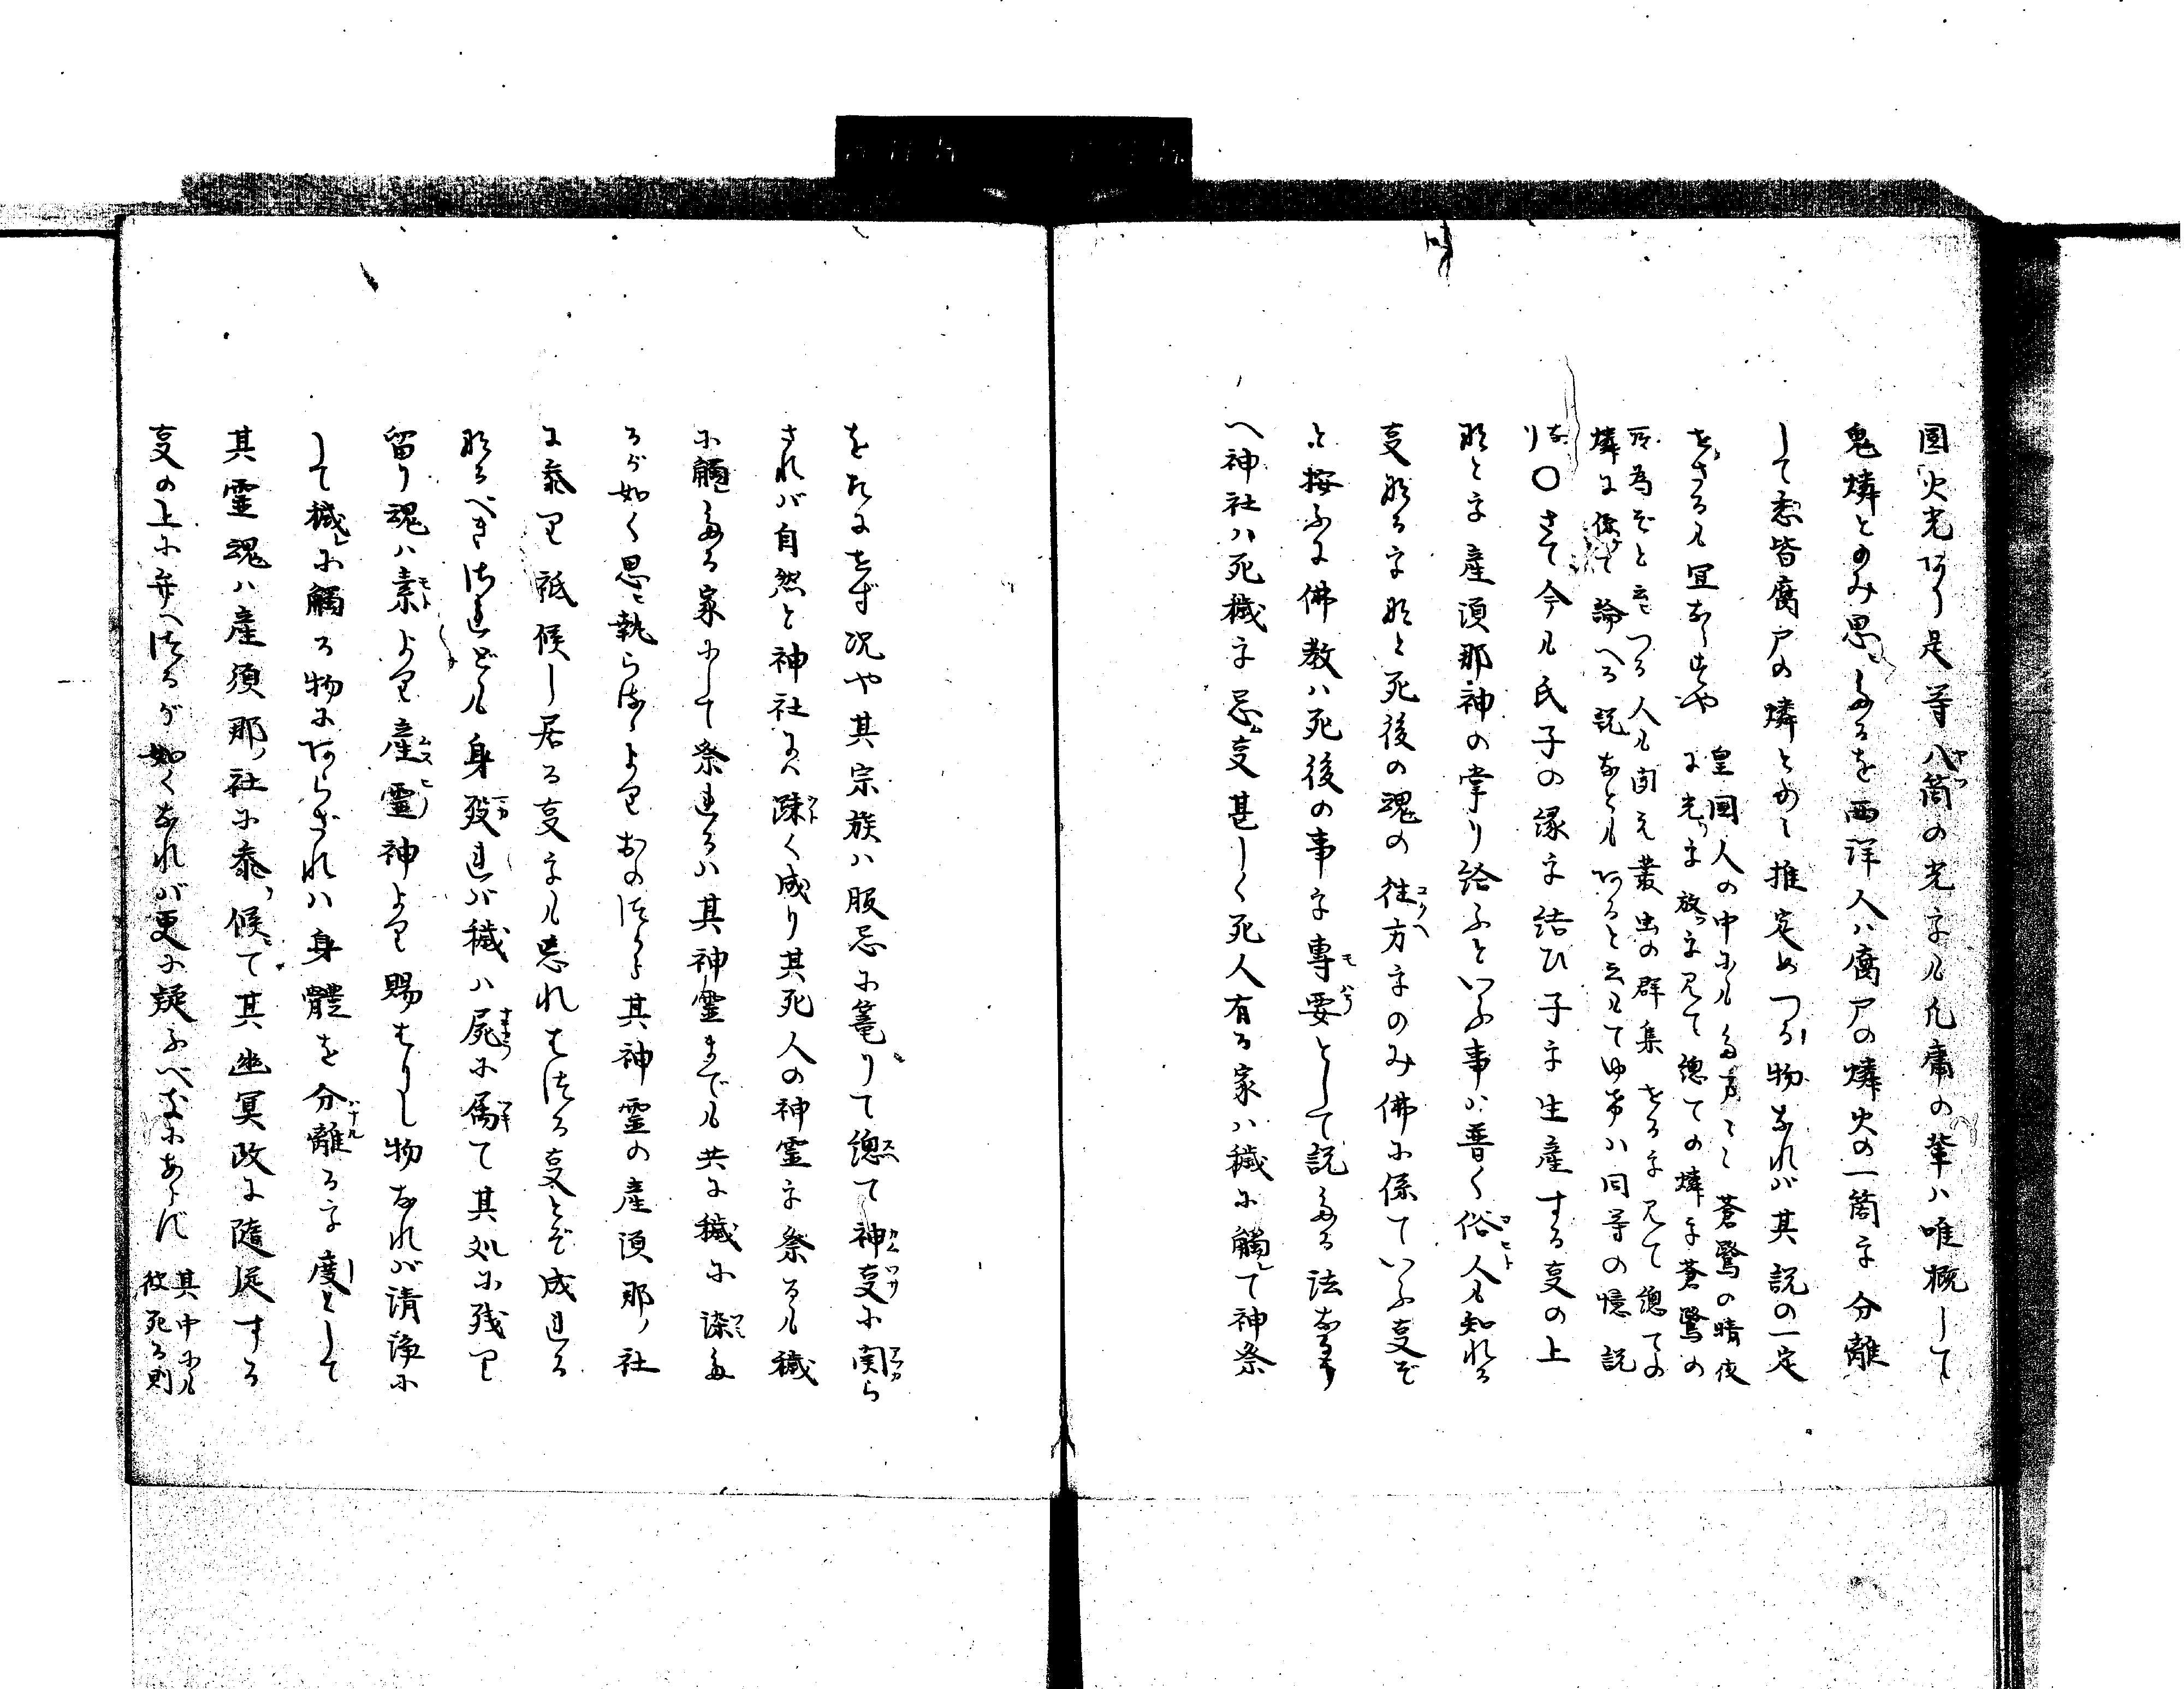 国火光アリ是等八箇の光をも凡庸の輩ハ唯概して
鬼燐とのみ思へるを西洋人ハ腐尸の燐火の一箇を分離
して悉皆腐尸の燐とのミ推定めつる物なれバ其説の一定
せざるも宜ならずや
皇国人の中にも蒼鷺の晴夜
に光りを放つを見て總ての燐を蒼鷺の
所為ぞと云つる人も聞え叢虫の群集せるを見て總ての
燐に係て論へる説などもアると云もてゆけハ同等の憶説
なり〇さて今も氏子の縁を結ひ子を生産する事の上
と按ふに佛教ハ死後の事を專要として説たる法なる
事なるを死後の魂の往方をのみ佛に係ていふ事ぞ
なとを産須那神の掌り給ふといふ事ハ普く俗人も知れる
へ神社ハ死穢を忌事甚しく死人有る家ハ穢に觸て神祭
をだにせず况や其宗族ハ服忌に篭りて總て神事に関ら
されバ自然と神社にハ疎く成り其死人の神霊を祭るも穢
に觸たる家にして祭れるハ其神霊までも共に穢に染た
るが如く思執らるゝより其神霊の産須那ノ社
に参り祗候し居る事をも忘れもしつる事とぞ成れる
なるべきされども身歿れバ穢ハ屍に属て其処に残り
留り魂ハ素より産霊神より賜はりし物なれバ清浄に
して穢に觸る物にアらざれハ身體を分離るを度として
其霊魂ハ産須那ノ社に参候て其幽冥政に隨従する
事の上に弁へつるが如くなれバ更に疑ふべきにあらず
其中にも
彼死る則